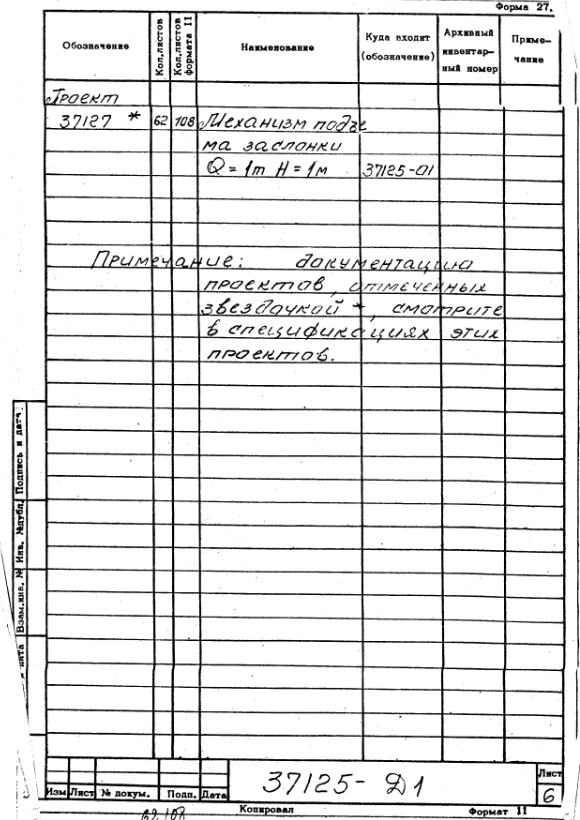 Форма 27.
Обозначение Кол.листов Кол.листов формата 11 Наименование Куда входит (обозначение) Архивный инвентарный номер Примечание
Проект
37127 * 62 108 Механизм подъе
ма заслонки
Q = 1т H = 1м 37125-01
Примечание: документацию
проектов, отмеченных
звездочкой *, смотрите
в спецификациях этих
проектов.
Подпись и дата
Инв. №дубл.
Взам.инв. №
дата
37125- Д1
Лист
6
Изм Лист № докум. Подп. Дата
62 108
Копировал Формат 11